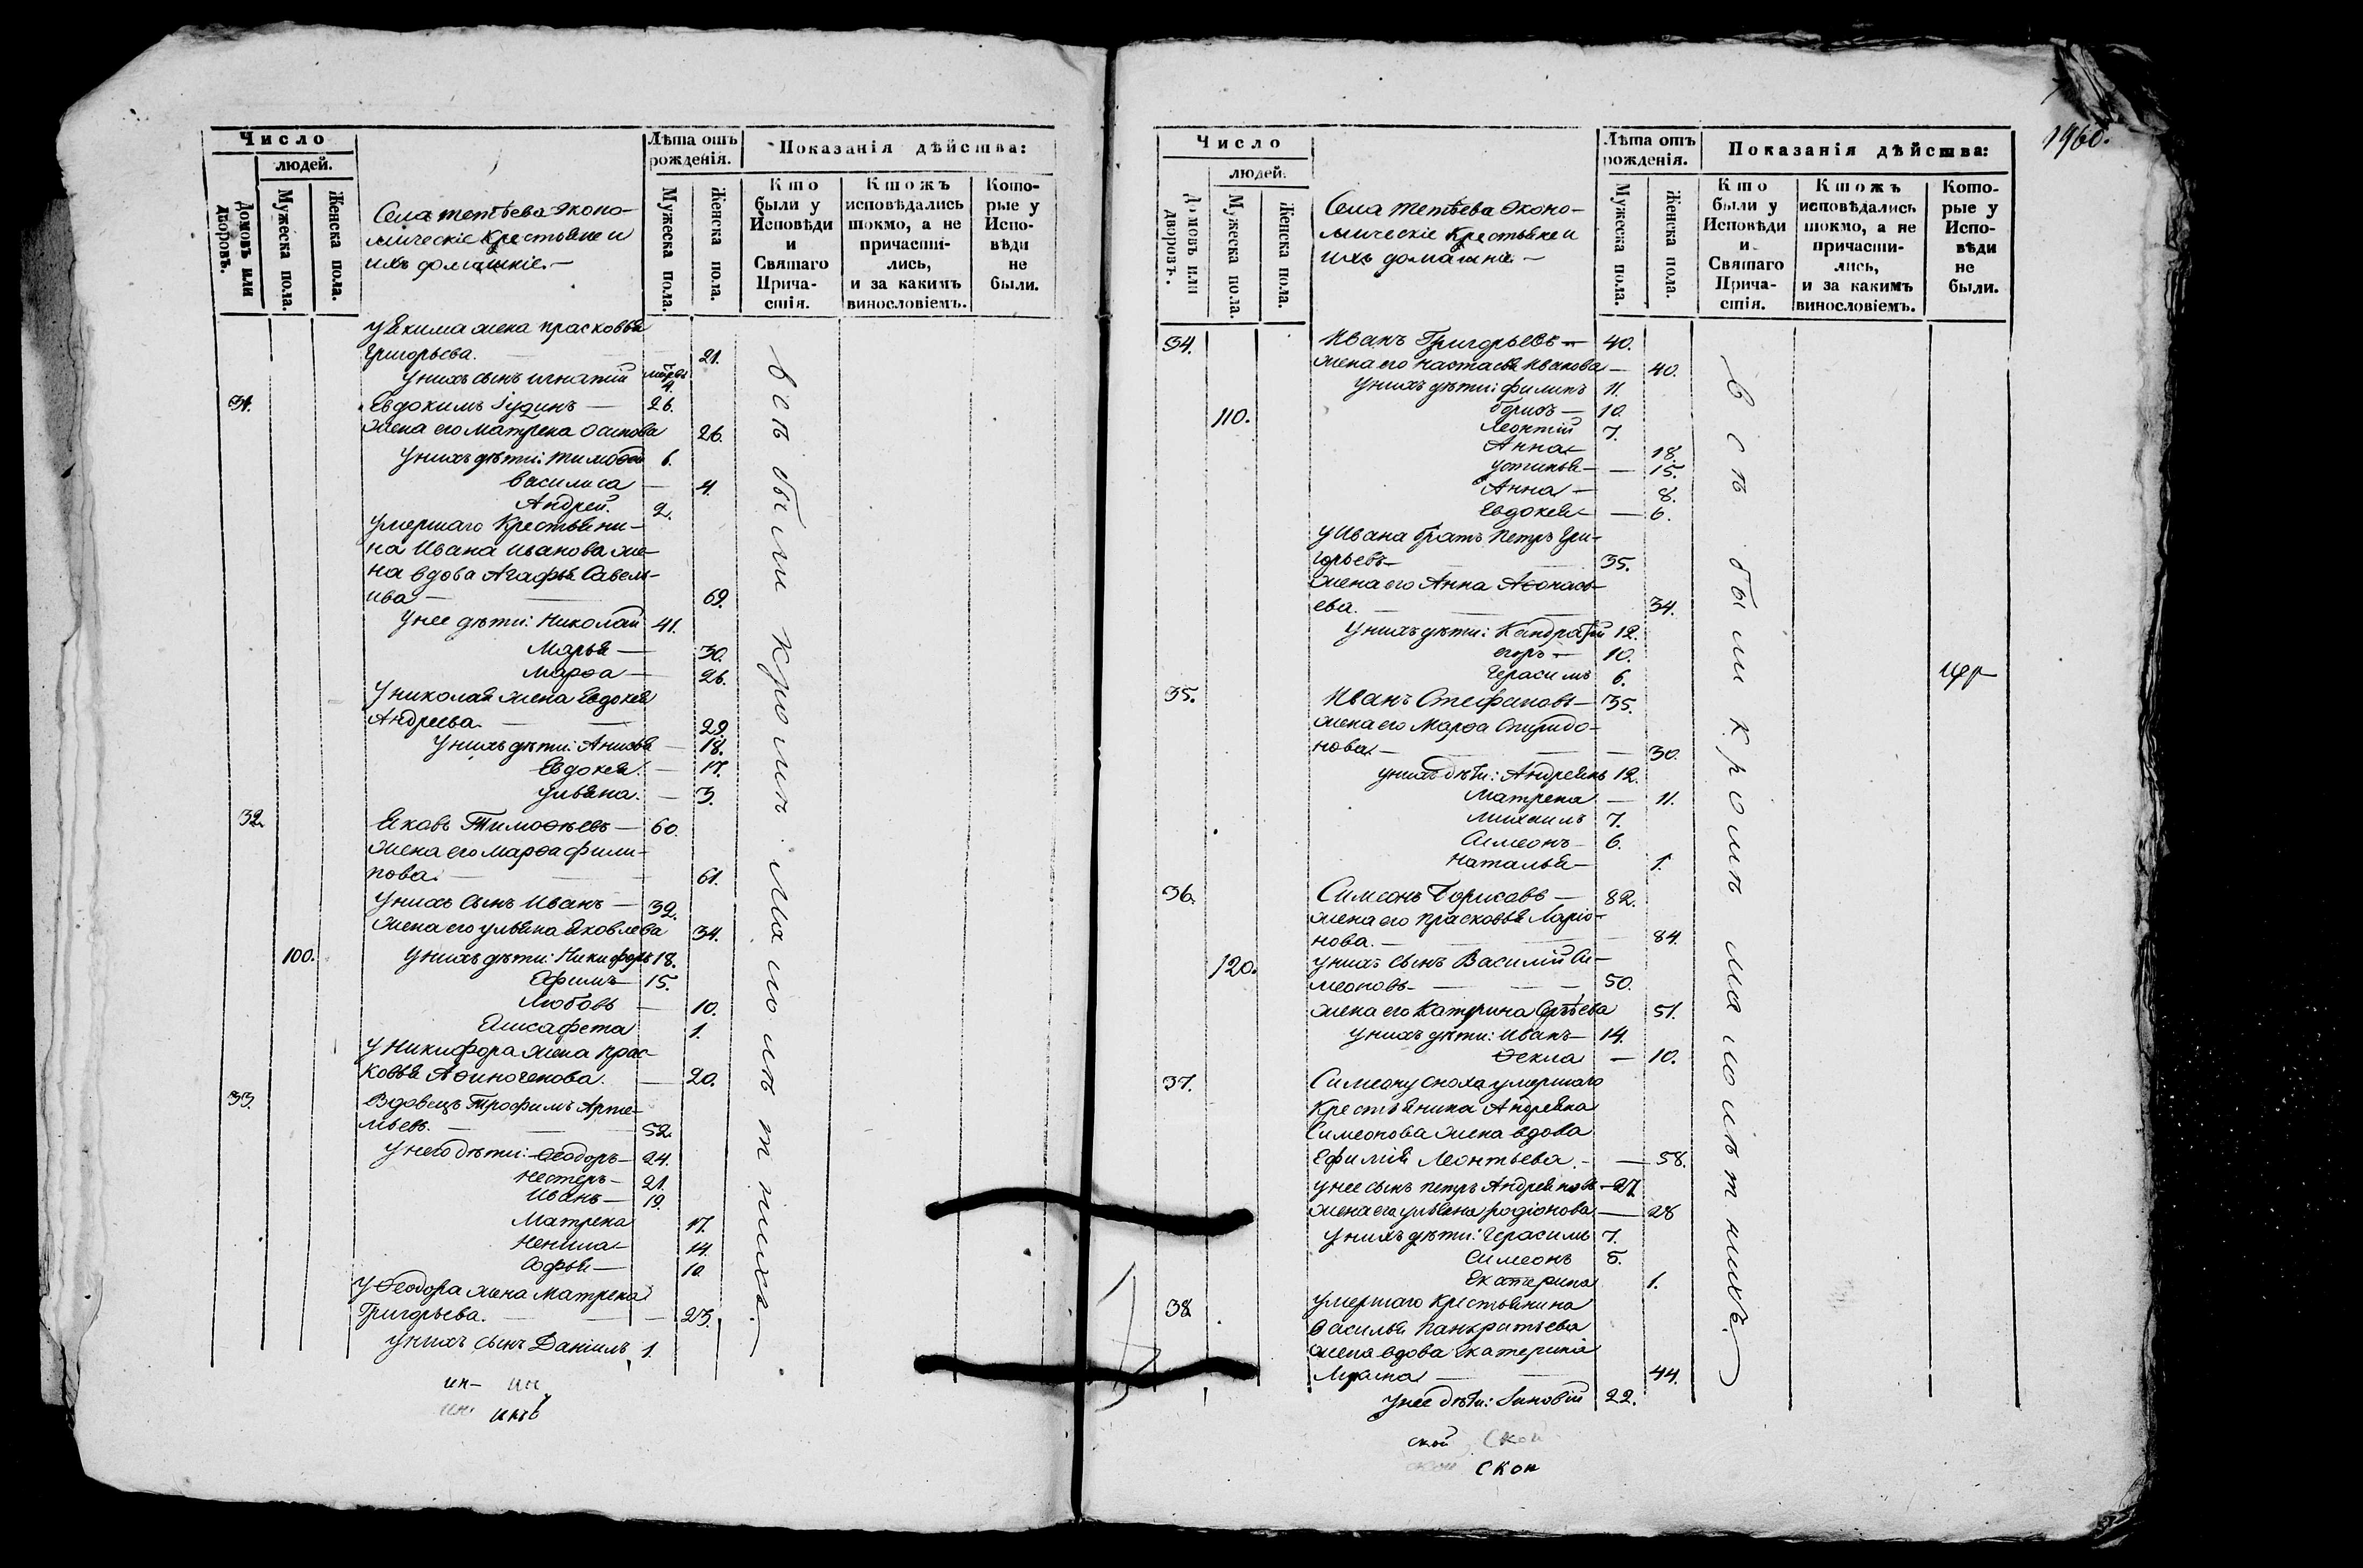 Число
людей.
Домовъ или дворовъ.
Мужеска пола.
Женска пола.
Села тетѣева Эконо-
мическіе Крестьяне и
ихъ домашніе.—
Лѣта отъ рожденія.
Мужеска пола.
Женска пола.
Показанія дѣйства:
Кто были у Исповѣди и Святаго Прича-стія.
Ктожъ исповѣдались токмо, а не причасти-лись, и за какимъ винословіемъ.
Кото-рые у Испо-вѣди не были.
у Якима жена прасковья
Григорьева. 21.
у нихъ сынъ игнатій
31. Евдокимъ Іудинъ — 26.
жена его матрена осипова 26.
у нихъ дѣти: тимоѳей 6.
василиса — 4.
Андрей. 2.
умершаго Крестьяни-
на Ивана иванова же-
на вдова Агафья Савель-
ива — 69.
у нее дѣти: Николай 41.
Марья — 30.
Марѳа — 26.
у николая жена Евдокея
Андреева. — 29.
у нихъ дѣти: Анисья — 18.
Евдокея. — 17.
ульяна. — 3.
32. Яковъ Тимоѳѣевъ — 60.
жена его марѳа фили-
пова. — 61.
у нихъ сынъ Иванъ — 39.
жена его ульяна Яковлева 34.
100. у нихъ дѣти: Никифоръ 18.
Ефимъ — 15.
Любовь — 10.
Елисафета 1.
у Никифора жена прас-
ковья Аѳиногенова. — 20.
33. Вдовецъ Трофимъ Арте-
мьевъ. — 52.
у него дѣти: Ѳеодоръ — 24.
Нестеръ — 21.
Иванъ — 19.
Матрена 17.
Ненила — 14.
Софья — 10.
у Ѳеодора жена матрена
Григорьева. — 23.
у нихъ сынъ Даніилъ 1.
всѣ были кромѣ малолѣтнихъ.
1960.
Число
людей.
Домовъ или дворовъ.
Мужеска пола.
Женска пола.
Села тетѣева Эконо-
мическіе Крестьяне и
ихъ домашніе —
Лѣта отъ рожденія.
Мужеска пола.
Женска пола.
Показанія дѣйства:
Кто были у Исповѣди и Святаго Прича-стія.
Ктожъ исповѣдались токмо, а не причасти-лись, и за какимъ винословіемъ.
Кото-рые у Испо-вѣди не были.
34. Иванъ Григорьевъ — 40.
жена его настасья иванова — 40.
у нихъ дѣти: филипъ 11.
110. борисъ — 10.
Леонтій 7.
Анна — 18.
устинья — 15.
Анна — 8.
Евдокея — 6.
у Ивана братъ Петръ Гри-
горьевъ — 35.
жена его Анна Аѳонась-
ева. — 34.
у нихъ дѣти: Кандратій 12.
егоръ — 10.
Герасимъ 6.
35. Иванъ Стефановъ — 35.
жена его марѳа Спиридо-
нова. — 30.
у нихъ дѣти: Андреянъ 12.
Матрена. — 11.
михаилъ 7.
Симеонъ — 6.
Наталья — 1.
36. Симеонъ Борисовъ — 82.
жена его прасковья Ларіо-
нова. — 84.
120. у нихъ сынъ Василій Си-
меоновъ — 50.
жена его Катерина Сергѣева 51.
у нихъ дѣти: иванъ — 14.
Ѳекла — 10.
37. Симеону сноха умершаго
Крестьянина Андреяна
Симеонова жена вдова
Ефимія Леонтьева. — 58.
у нее сынъ петръ Андреяновъ — 27
жена его ульяна родіонова — 28
у нихъ дѣти: Герасимъ 7.
Симеонъ 5.
Екатерина 1.
38 умершаго Крестьянина
Василья Панкратьева
жена вдова Екатерина
44.
у нее дѣти: Зиновій 22.
всѣ были кромѣ малолѣтнихъ.
ской Ской
ской Ской